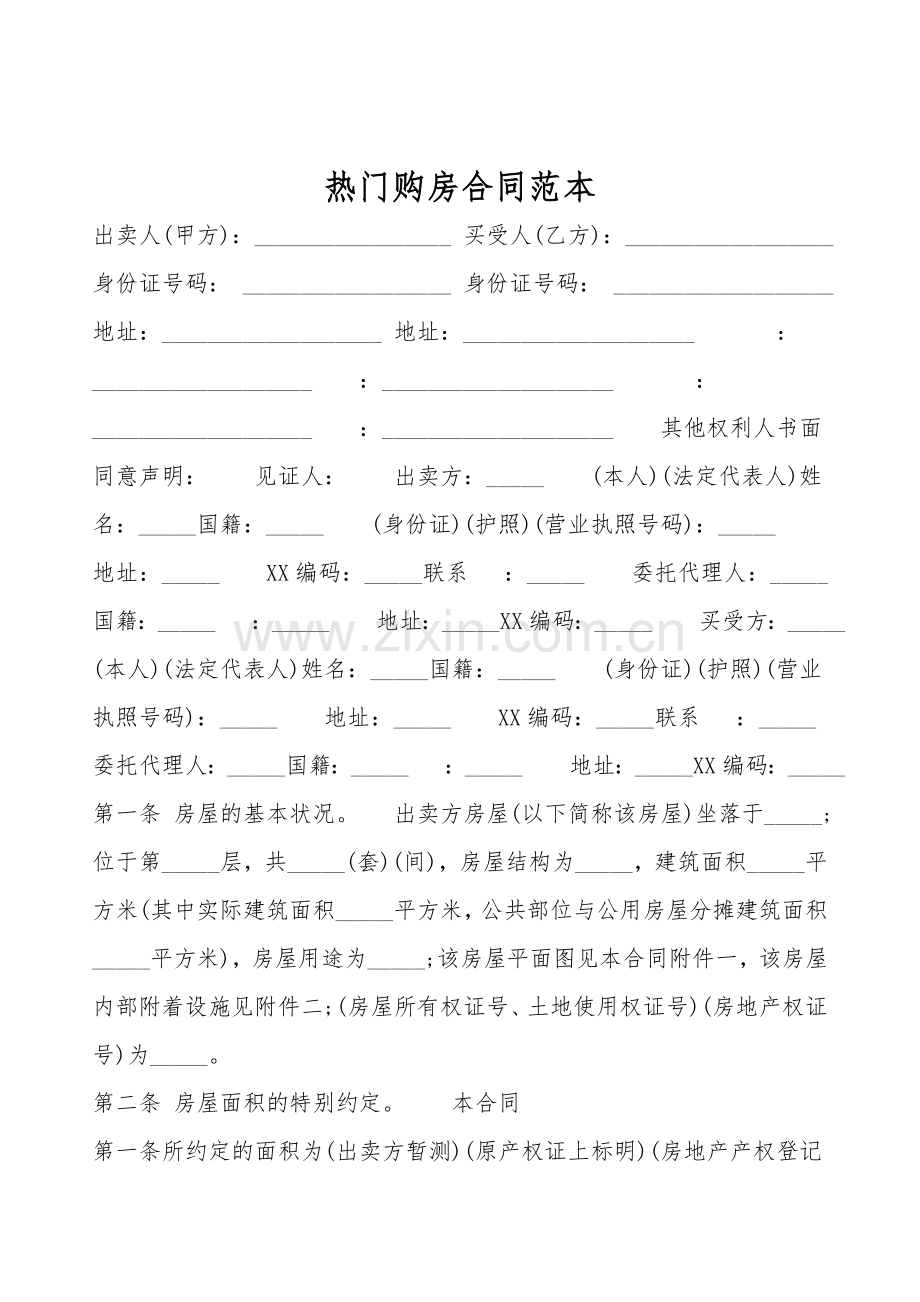 热门购房合同范本
出卖人(甲方)：_________________ 买受人(乙方)：__________________
身份证号码： __________________ 身份证号码： ___________________
地址：___________________ 地址：____________________ ：
___________________ ：____________________ ：
___________________ ：____________________ 其他权利人书面
同意声明： 见证人： 出卖方：_____ (本人)(法定代表人)姓
名：_____国籍：_____ (身份证)(护照)(营业执照号码)：_____
地址：_____ XX编码：_____联系 ：_____ 委托代理人：_____
国籍：_____ ：_____ 地址：_____XX编码：_____ 买受方：_____
(本人)(法定代表人)姓名：_____国籍：_____ (身份证)(护照)(营业
执照号码)：_____ 地址：_____ XX编码：_____联系 ：_____
委托代理人：_____国籍：_____ ：_____ 地址：_____XX编码：_____
第一条 房屋的基本状况。 出卖方房屋(以下简称该房屋)坐落于_____;
位于第_____层，共_____(套)(间)，房屋结构为_____，建筑面积_____平
方米(其中实际建筑面积_____平方米，公共部位与公用房屋分摊建筑面积
_____平方米)，房屋用途为_____;该房屋平面图见本合同附件一，该房屋
内部附着设施见附件二;(房屋所有权证号、土地使用权证号)(房地产权证
号)为_____。
第二条 房屋面积的特别约定。 本合同
第一条所约定的面积为(出卖方暂测)(原产权证上标明)(房地产产权登记
www.zixin.com.cn